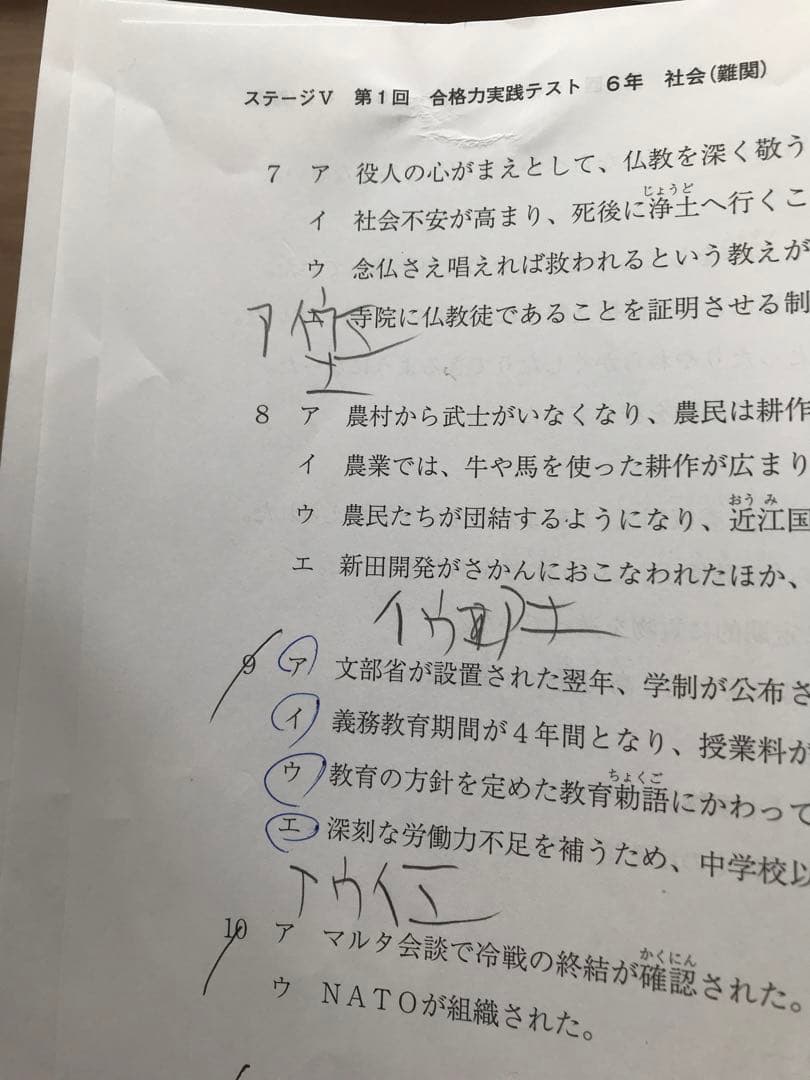 ステージⅤ 第1回 合格力実践テスト 6年 社会(難関)
7 ア 役人の心がまえとして、仏教を深く敬う
じょうど
イ 社会不安が高まり、死後に浄土へ行くこ
ウ 念仏さえ唱えれば救われるという教えが
寺院に仏教徒であることを証明させる制
アイウエ
エ
8 ア 農村から武士がいなくなり、農民は耕作
イ 農業では、牛や馬を使った耕作が広まり
おうみ
ウ 農民たちが団結するようになり、近江国
エ 新田開発がさかんにおこなわれたほか、
イウ
9 ア 文部省が設置された翌年、学制が公布さ
イ 義務教育期間が4年間となり、授業料が
ちょくご
ウ 教育の方針を定めた教育勅語にかわって
エ 深刻な労働力不足を補うため、中学校以
アウイエ
かくにん
10 ア マルタ会談で冷戦の終結が確認された。
ウ NATOが組織された。